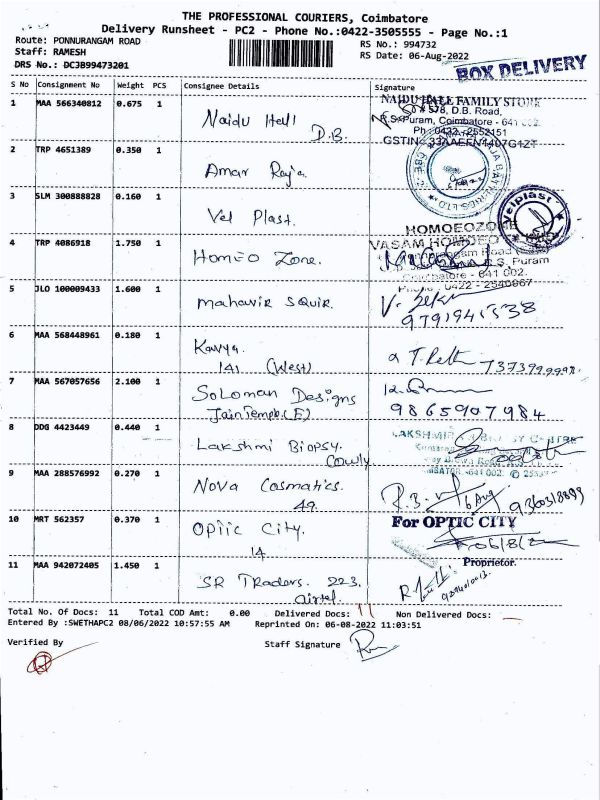 THE PROFESSIONAL COURIERS, Coimbatore
Delivery Runsheet - PC2 - Phone No.:0422-3505555 - Page No.:1
Route: PONNURANGAM ROAD
Staff: RAMESH
DRS No.: DCJB99473201
RS No.: 994732
RS Date: 06-Aug-2022
BOX DELIVERY
S No Consignment No Weight PCS Consignee Details Signature
1 MAA 566340812 0.675 1 Naidu Hall D.B.
NAIDU HALL FAMILY STORE
578, D.B. Road,
R.S.Puram, Coimbatore - 641 002.
Ph : 0422 - 2552151
GSTIN : 33AAEFN1407G1ZT
2 TRP 4651389 0.350 1 Amar Raja
3 SLM 300888828 0.160 1 Vel Plast.
Velplast
4 TRP 4086918 1.750 1 Homeo Zone.
HOMOEOZONE
VASAM HOMOEO
R.S. Puram
Coimbatore - 641 002.
Phone : 0422 - 2540067
5 JLO 100009433 1.600 1 Mahavir Squir.
9791941538
6 MAA 568448961 0.180 1 Kavya.
141 (West)
7373999998
7 MAA 567057656 2.100 1 Soloman Designs
Jain Temple (E)
9865907984
8 DDG 4423449 0.440 1 Lakshmi Biopsy.
Cowly
LAKSHMI BIOPSY CENTRE
9 MAA 288576992 0.270 1 Nova Cosmatics.
49.
10 MRT 562357 0.370 1 Optic City.
14
For OPTIC CITY
06/8/22
Proprietor.
11 MAA 942072405 1.450 1 SR Traders. 223.
Airtel.
Total No. Of Docs: 11 Total COD Amt: 0.00 Delivered Docs: 11 Non Delivered Docs: -
Entered By :SWETHAPC2 08/06/2022 10:57:55 AM Reprinted On: 06-08-2022 11:03:51
Verified By
Staff Signature